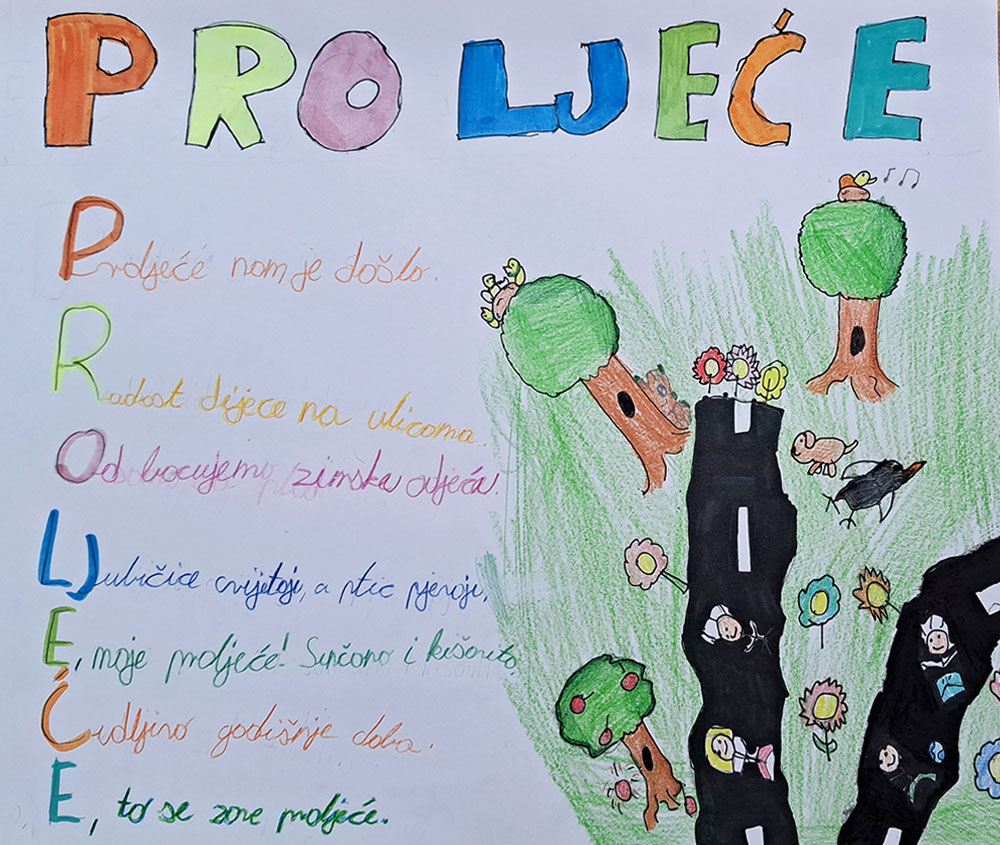 PROLJEĆE
Proljeće nam je došlo.
Radost dijece na ulicama.
Odbacujemo zimska odjeća.
LJubičice cvijetaji, a ptic pjevaji,
E, moje proljeće! Sunčano i kišovito,
Ćudljivo godišnje doba.
E, to se zove proljeće.